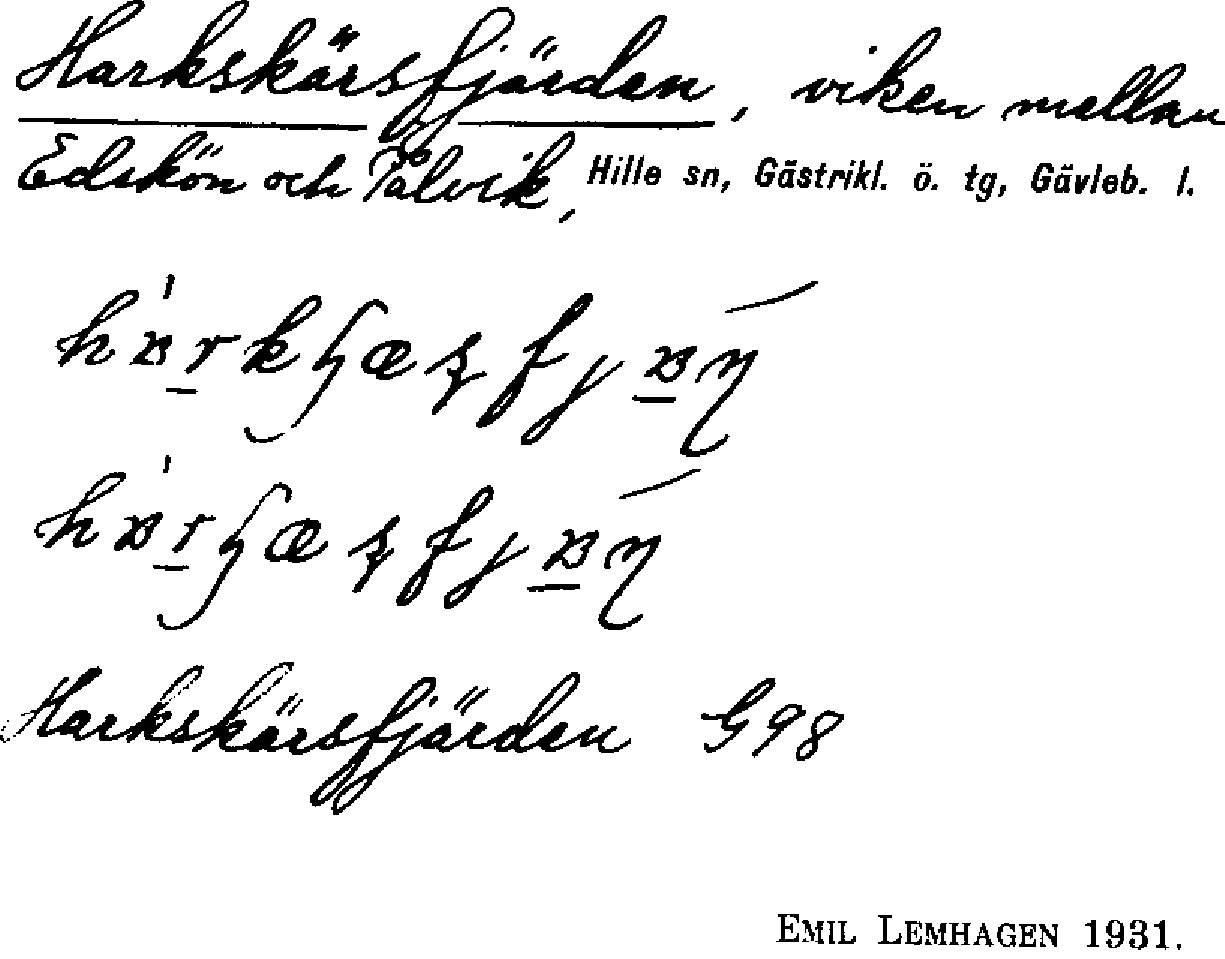 Harkskärsfjärden, viken mellan
Edskön och Pålvik, Hille sn, Gästrikl. ö. tg, Gävleb. l.
Harkskärsfjärden G98
EMIL LEMHAGEN 1931.